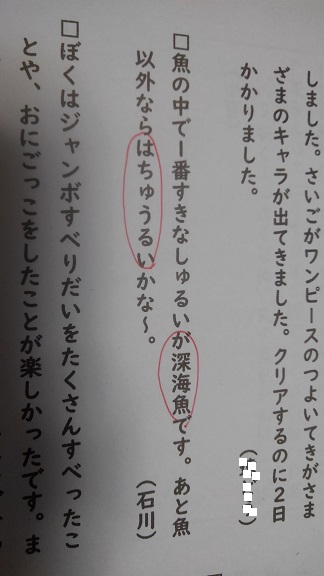 しました。さいごがワンピースのつよいてきがさま
ざまのキャラが出てきました。クリアするのに2日
かかりました。
□魚の中で一番すきなしゅるいが深海魚です。あと魚
以外ならはちゅうるいかな～。
（石川）
□ぼくはジャンボすべりだいをたくさんすべったこ
とや、おにごっこをしたことが楽しかったです。ま